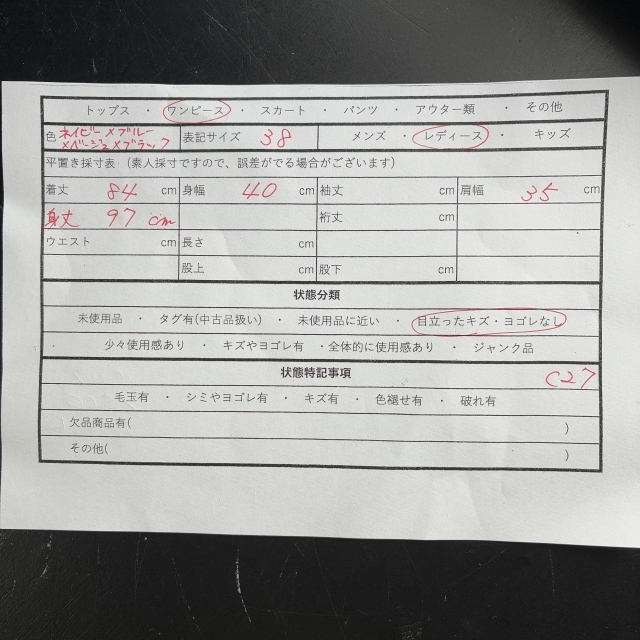 トップス ・ ワンピース ・ スカート ・ パンツ ・ アウター類 ・ その他
色 ネイビー×ブルー×ベージュ×ブラック 表記サイズ 38 メンズ ・ レディース ・ キッズ
平置き採寸表 （素人採寸ですので、誤差がでる場合がございます）
着丈 84 cm 身幅 40 cm 袖丈 cm 肩幅 35 cm
身丈 97 cm 裄丈 cm
ウエスト cm 長さ cm
股上 cm 股下 cm
状態分類
未使用品 ・ タグ有(中古品扱い) ・ 未使用品に近い ・ 目立ったキズ・ヨゴレなし
少々使用感あり ・ キズやヨゴレ有 ・全体的に使用感あり ・ ジャンク品
状態特記事項
C27
毛玉有 ・ シミやヨゴレ有 ・ キズ有 ・ 色褪せ有 ・ 破れ有
欠品商品有( )
その他( )